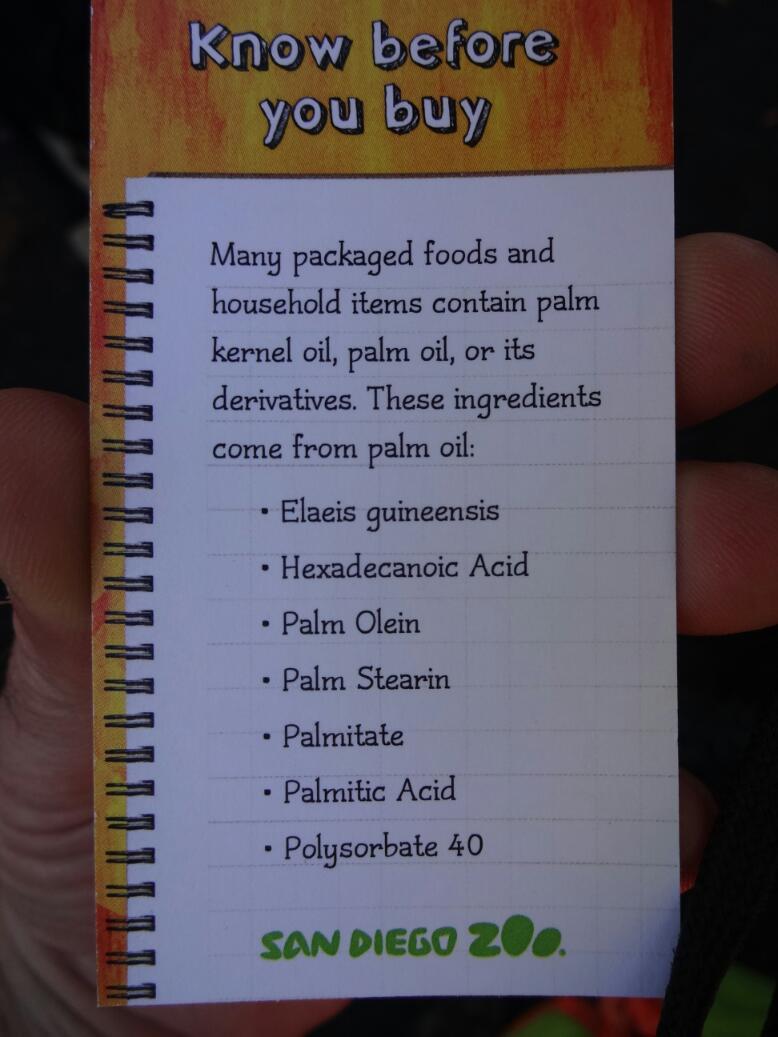 Know before
you buy
Many packaged foods and
household items contain palm
kernel oil, palm oil, or its
derivatives. These ingredients
come from palm oil:
• Elaeis guineensis
• Hexadecanoic Acid
• Palm Olein
• Palm Stearin
• Palmitate
• Palmitic Acid
• Polysorbate 40
SAN DIEGO ZOO.